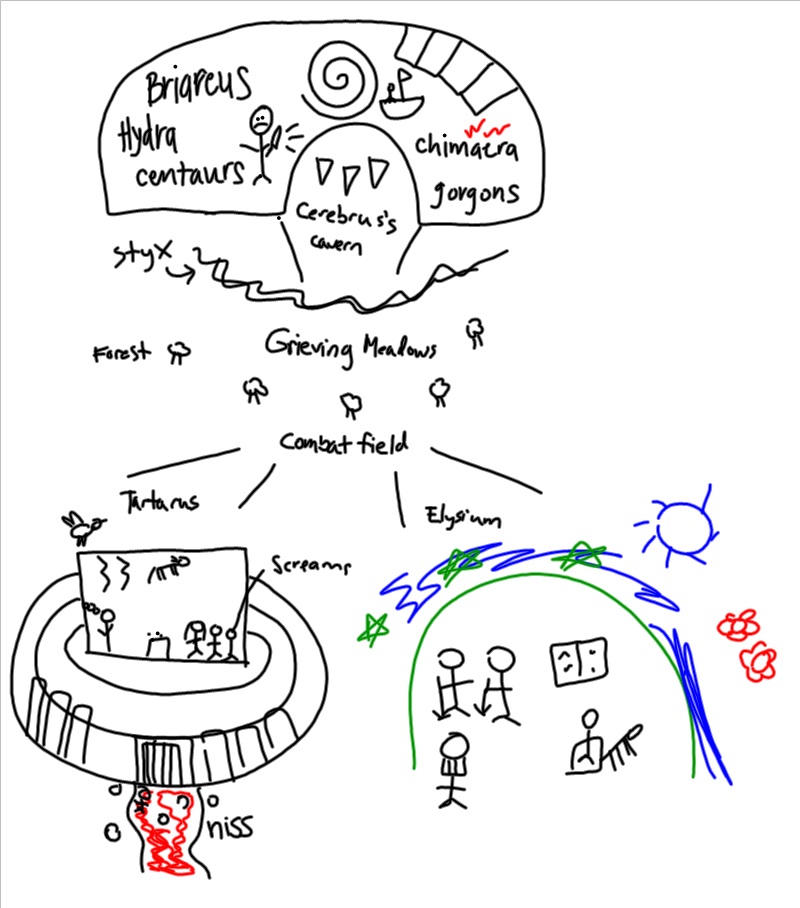 Briareus
Hydra
centaurs
chimaera
gorgons
Cerebrus's
cavern
styx
Forest
Grieving Meadows
Combat field
Tartarus
Elysium
Screams
niss